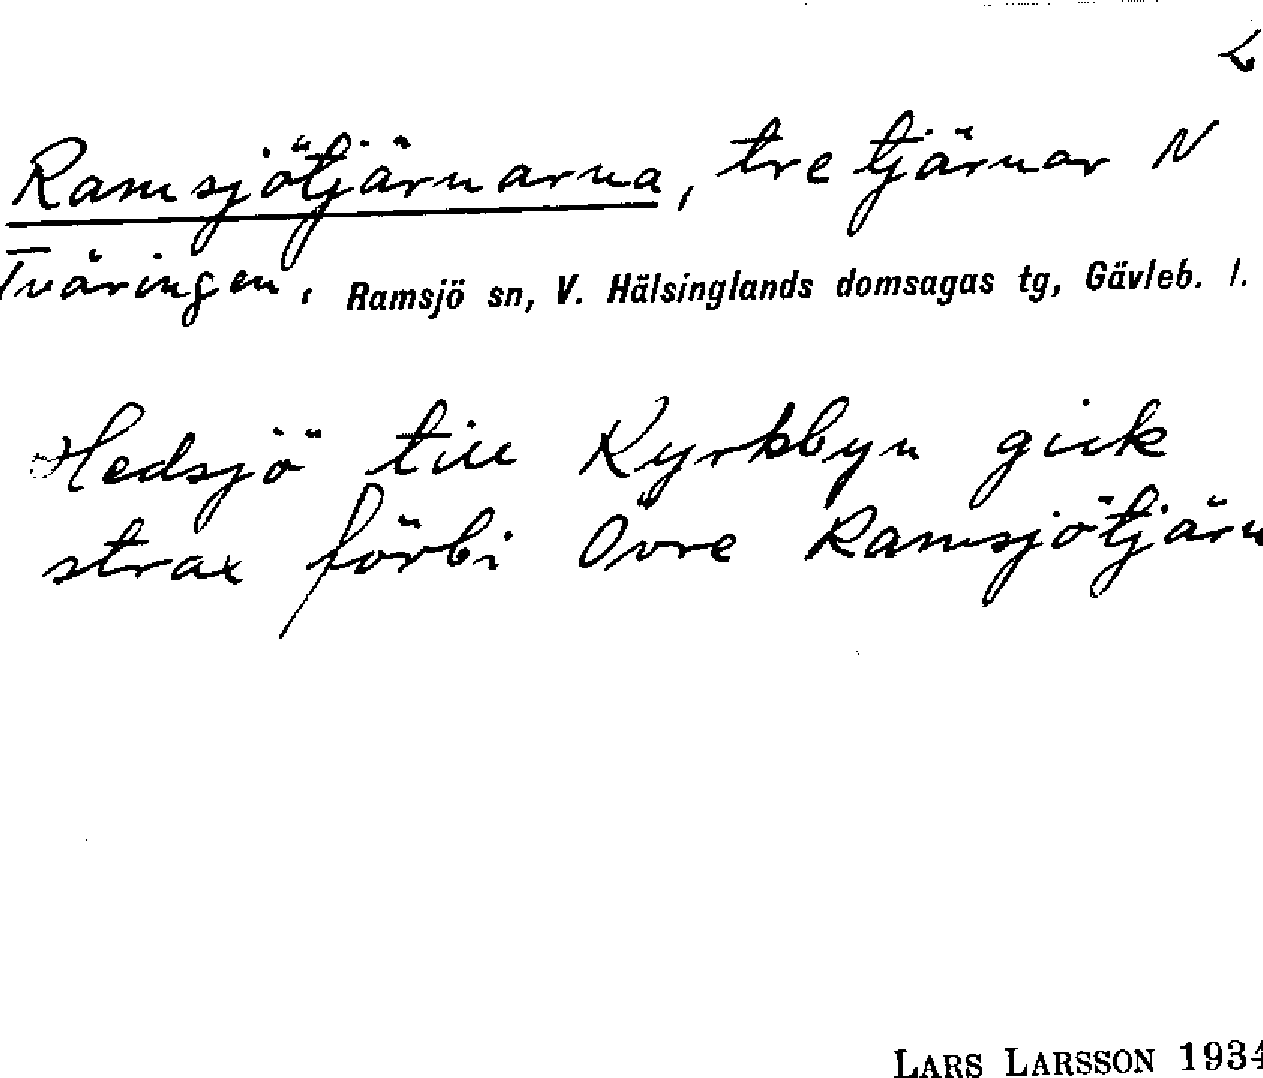 2
Ramsjötjärnarna, tre tjärnar N
Tväringen. Ramsjö sn, V. Hälsinglands domsagas tg, Gävleb. l.
Hedsjö till Kyrkbyn gick
strax förbi Övre Ramsjötjärn
LARS LARSSON 1934